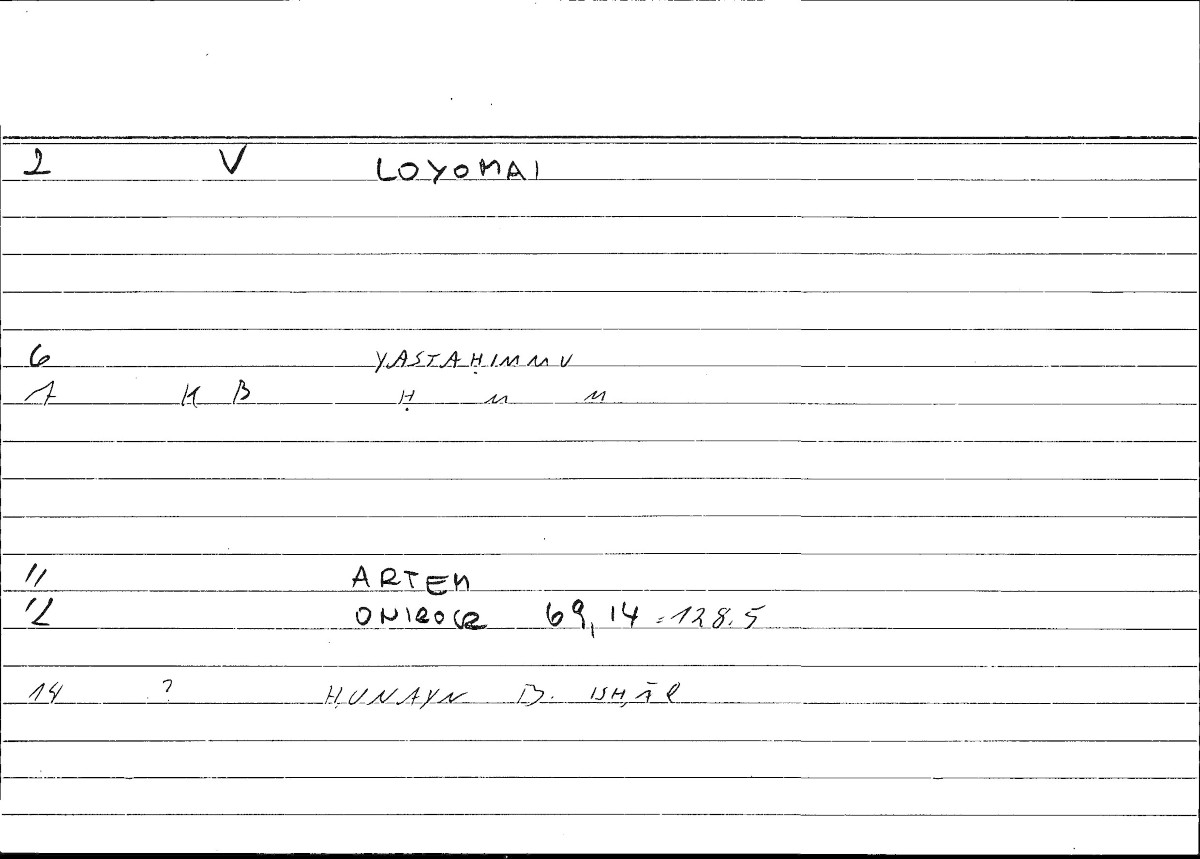 2 V LOYOMAI
6 YASTAḤIMMU
7 K B Ḥ M M
11 ARTEM
12 ONIROCR 69,14 = 128.5
14 ? ḤUNAYN B. ISḤĀQ